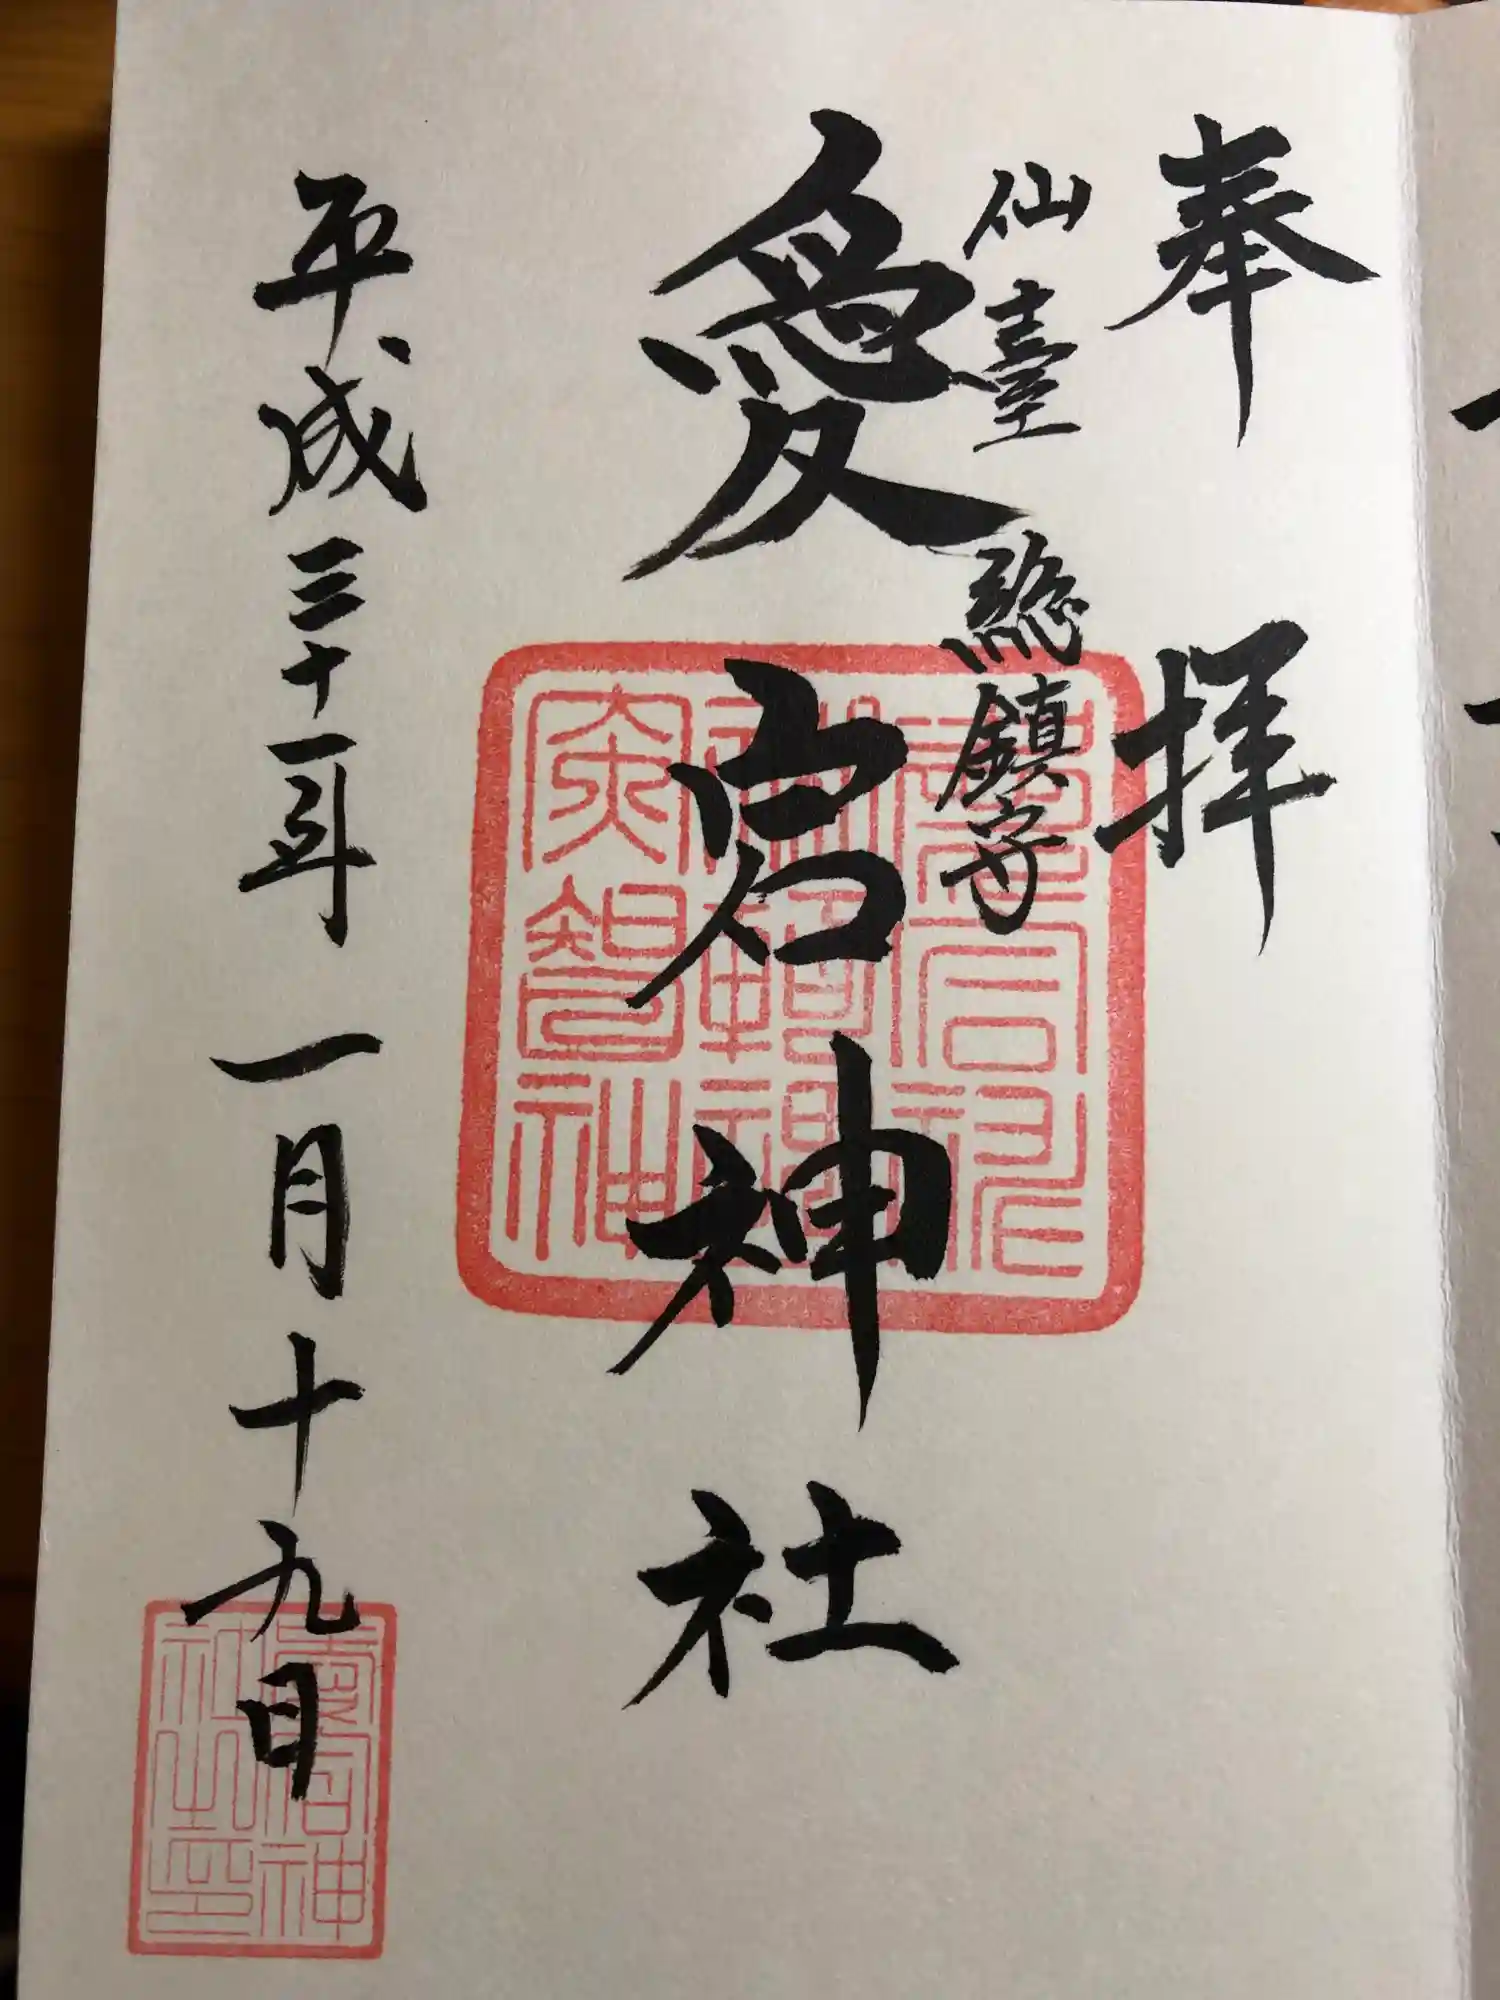 奉拝
仙臺 総鎮守
愛宕神社
平成三十一年一月十九日
愛宕神
社之印